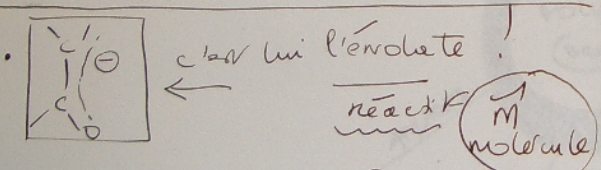 C ⊖ c'est lui l'énolate !
C
O réactif
m
molécule